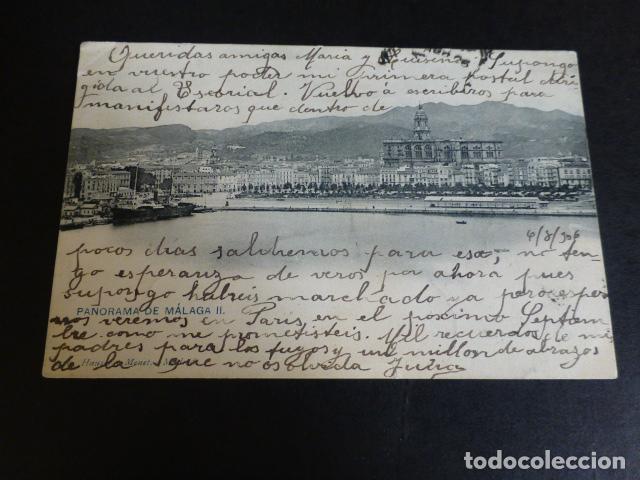 Queridas amigas María y Luisina: Supongo
en vuestro poder mi primera postal diri-
gida al Escorial. Vuelvo á escribiros para
manifestaros que dentro de
6/8/906
pocos días saldremos para esa; no ten-
go esperanza de veros por ahora pues
supongo habreis marchado ya pero espe-
PANORAMA DE MÁLAGA II.
ro nos veremos en París en el próximo Septiem-
bre como me prometisteis. Mil recuerdos de mis
padres para los tuyos y un millon de abrazos
de la que no os olvida
Hauser y Menet.
todocoleccion.net